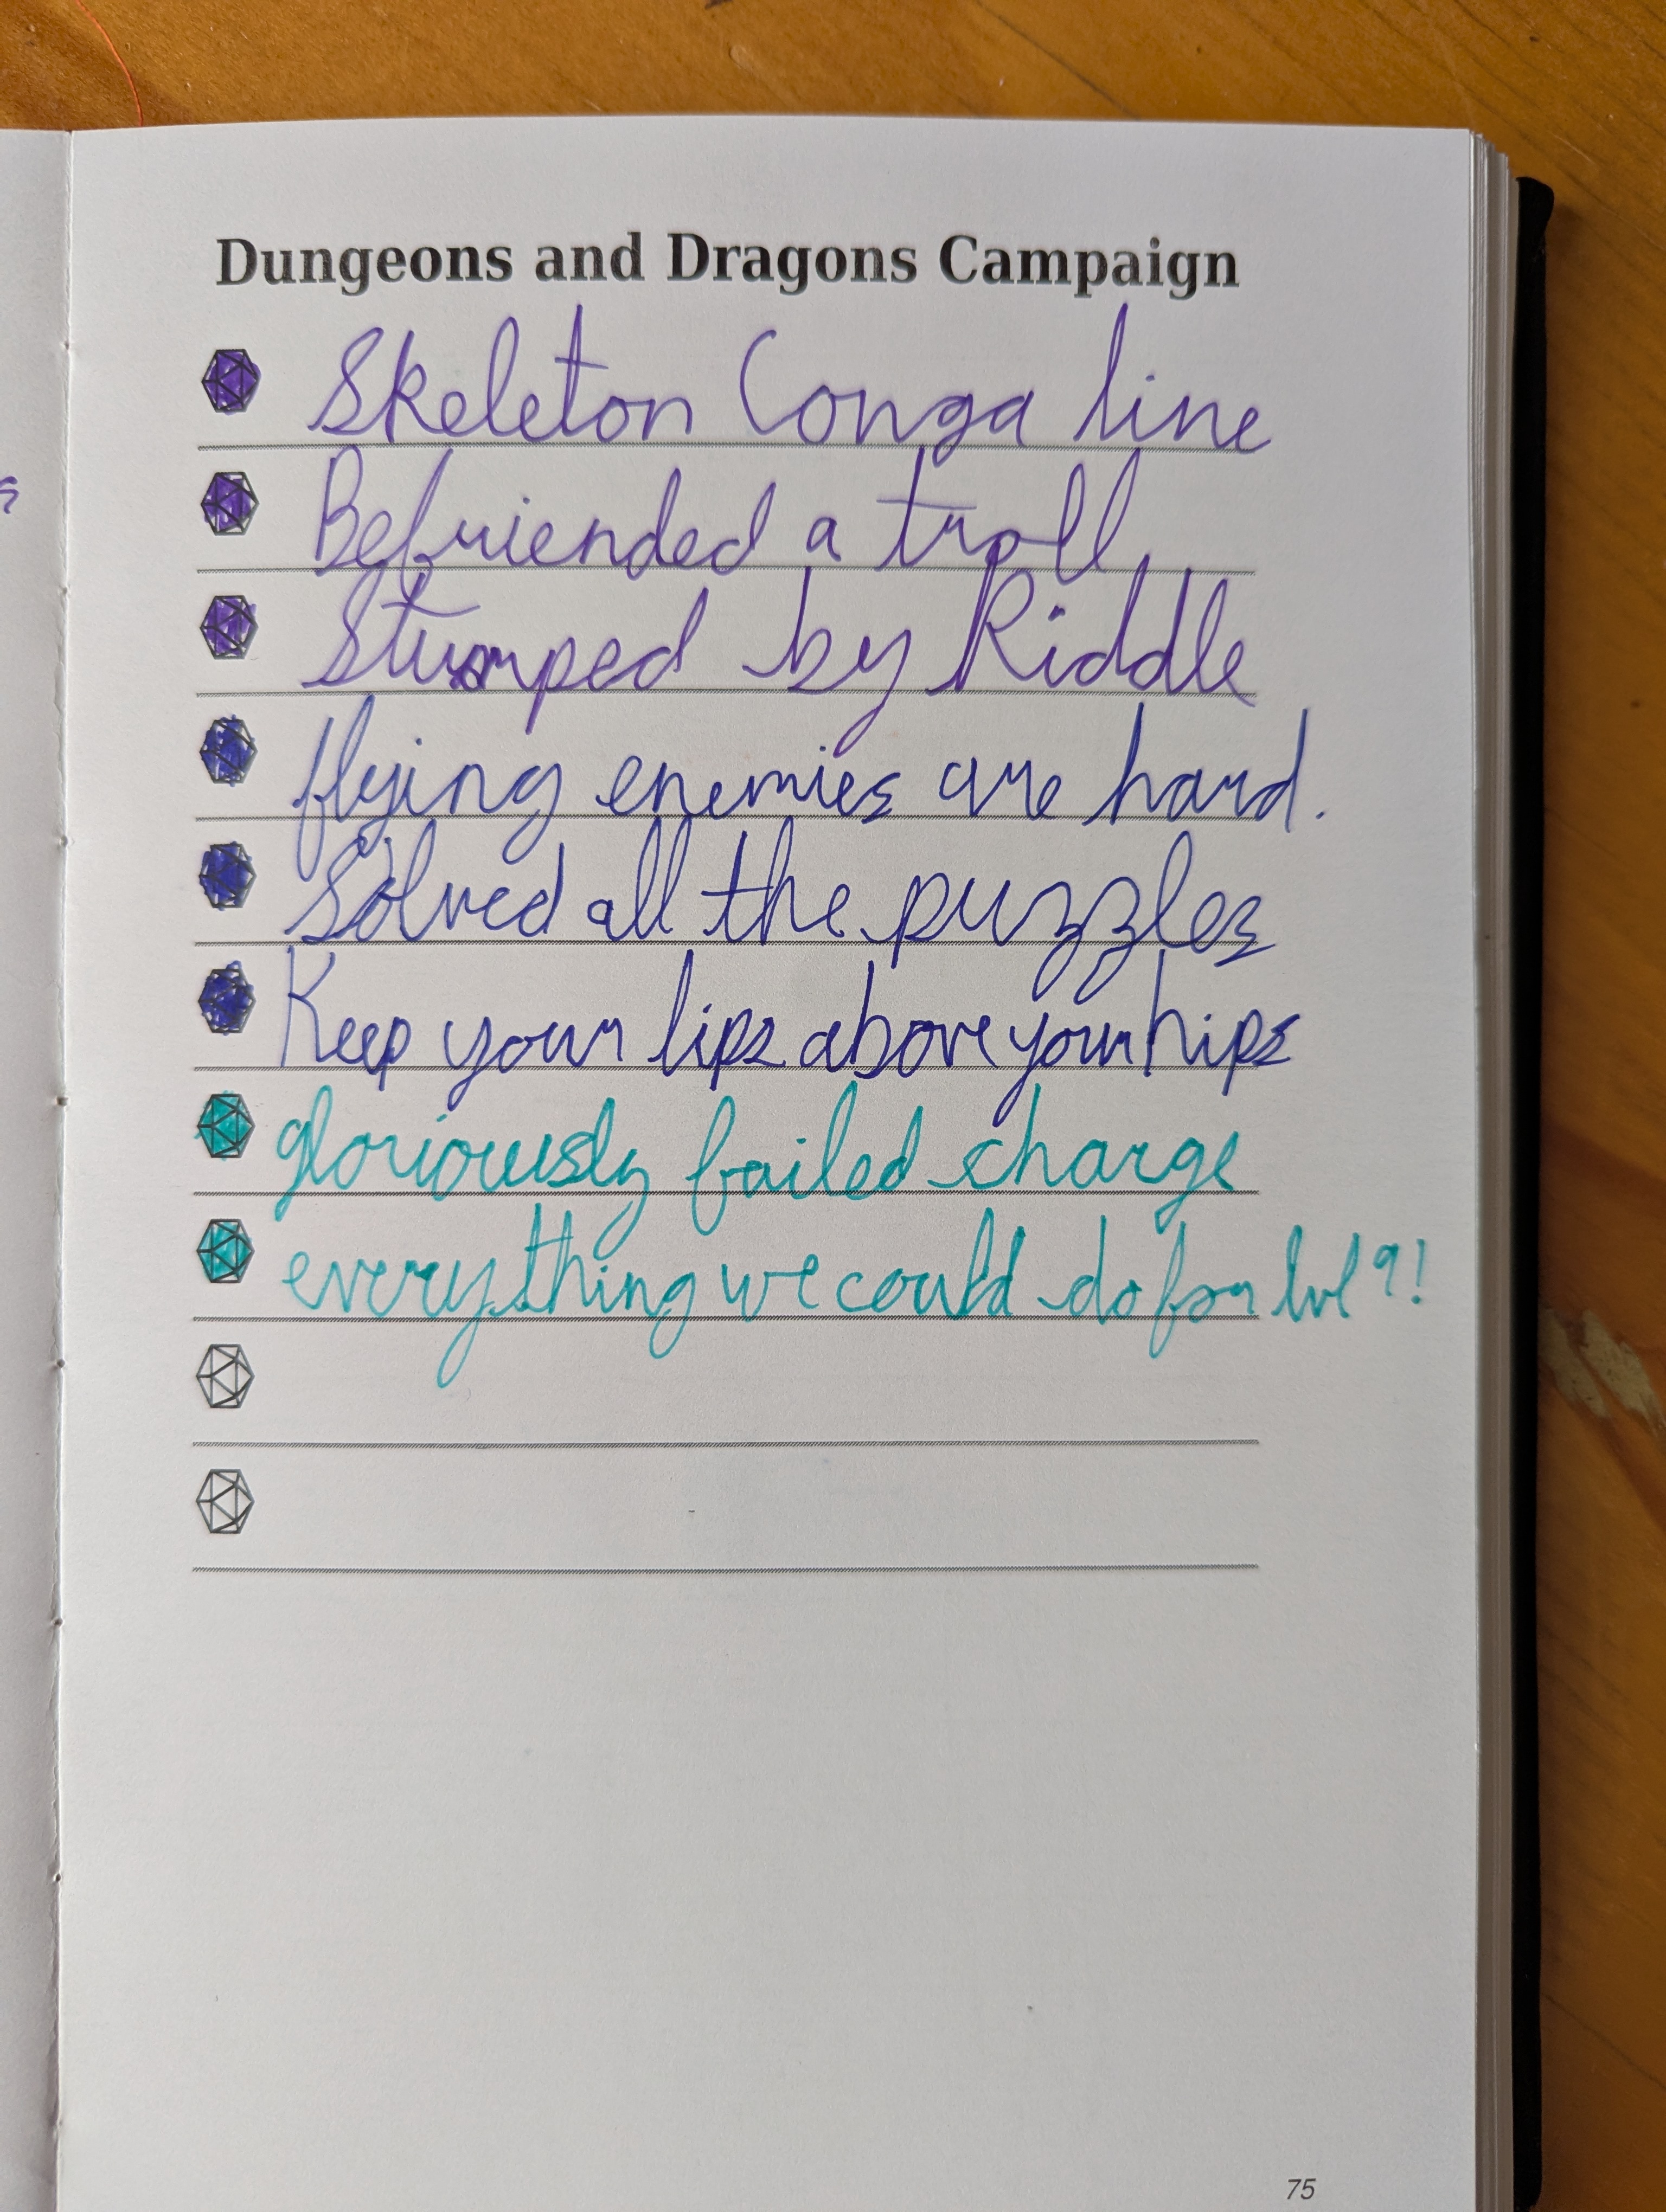 Dungeons and Dragons Campaign
Skeleton Conga line
Befriended a troll
Stumped by Riddle
flying enemies are hard.
Solved all the puzzles
Keep your lips above your hips
gloriously failed charge
everything we could do for lvl 9!
75